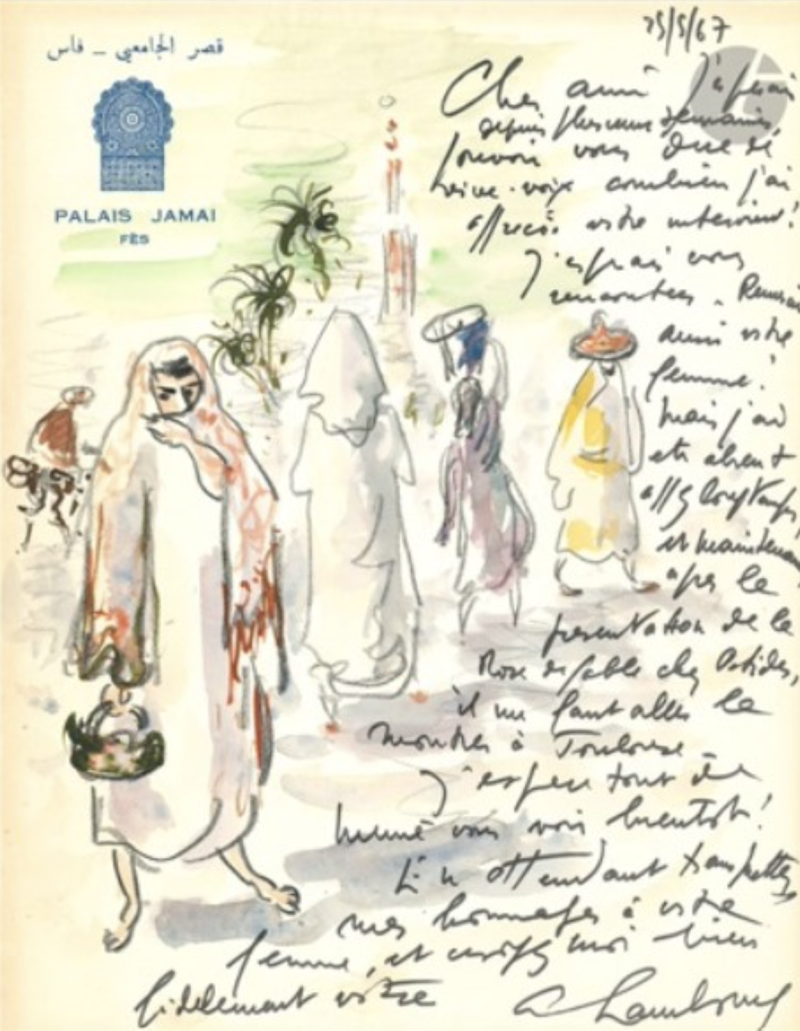 قصر الجامعي - فاس
PALAIS JAMAI
FÈS
25/5/67
Cher ami j'espérais
depuis plusieurs semaines
pouvoir vous dire de
vive-voix combien j'ai
votre
J'espérais vous
rencontrer.
aussi votre
femme!
mais j'ai
été absent
assez longtemps,
et maintenant
après le
présentation de la
Rose de sable chez
il me faut aller la
montrer à Toulouse
J'espère tout de
même vous voir bientôt!
En attendant transmettez
mes hommages à votre
femme, et croyez moi bien
fidèlement votre